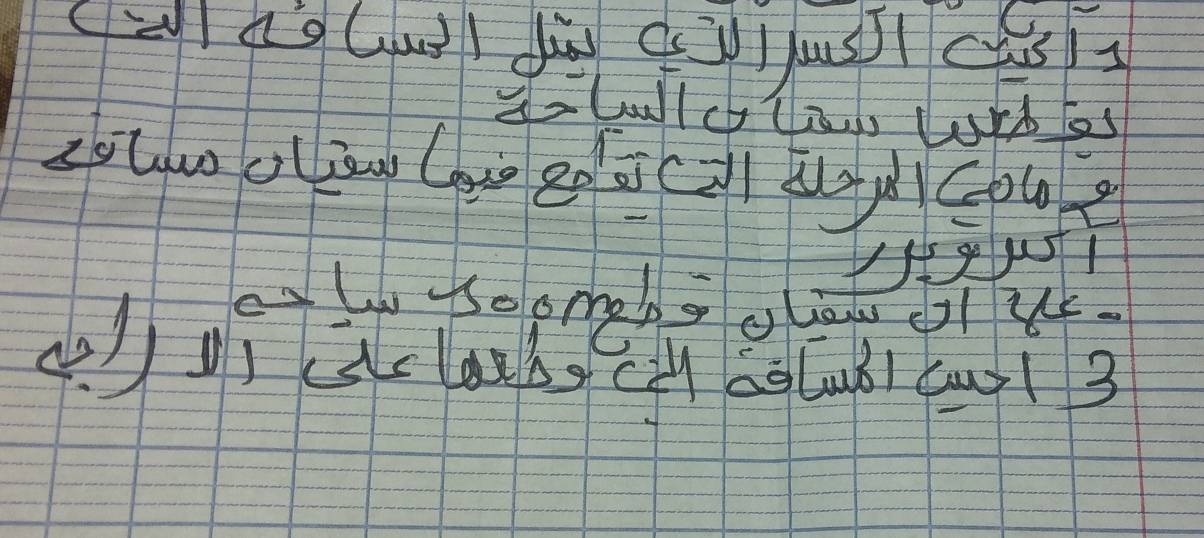 واكتب الكسر الذي يمثل المسافة التي
يقطعها سفيان السباحة
في ماهي المرحلة التي تقطع فيها سفيان مسافة
اكبر وبرر
- علما ان سفيان قطع 500m سباحة
3 احسب المسافة التي قطعها على الدراجة